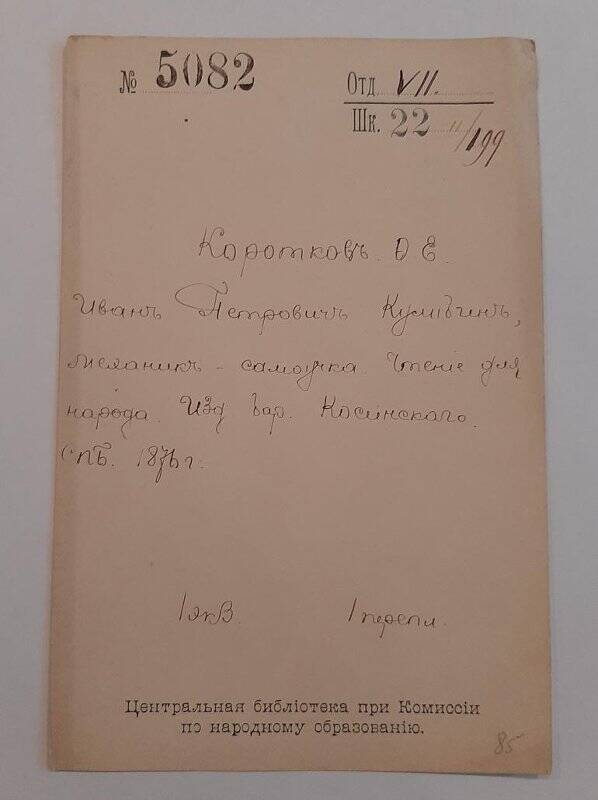 № 5082
Отд. VII.
Шк. 22 11/199
Коротковъ. Ѳ Е.
Иванъ Петровичъ Кулибинъ,
механикъ - самоучка. Чтеніе для
народа. Изд бар. Косинскаго.
СПБ. 1876 г.
1 экз. 1 перепл.
Центральная библіотека при Комиссіи
по народному образованію.
85